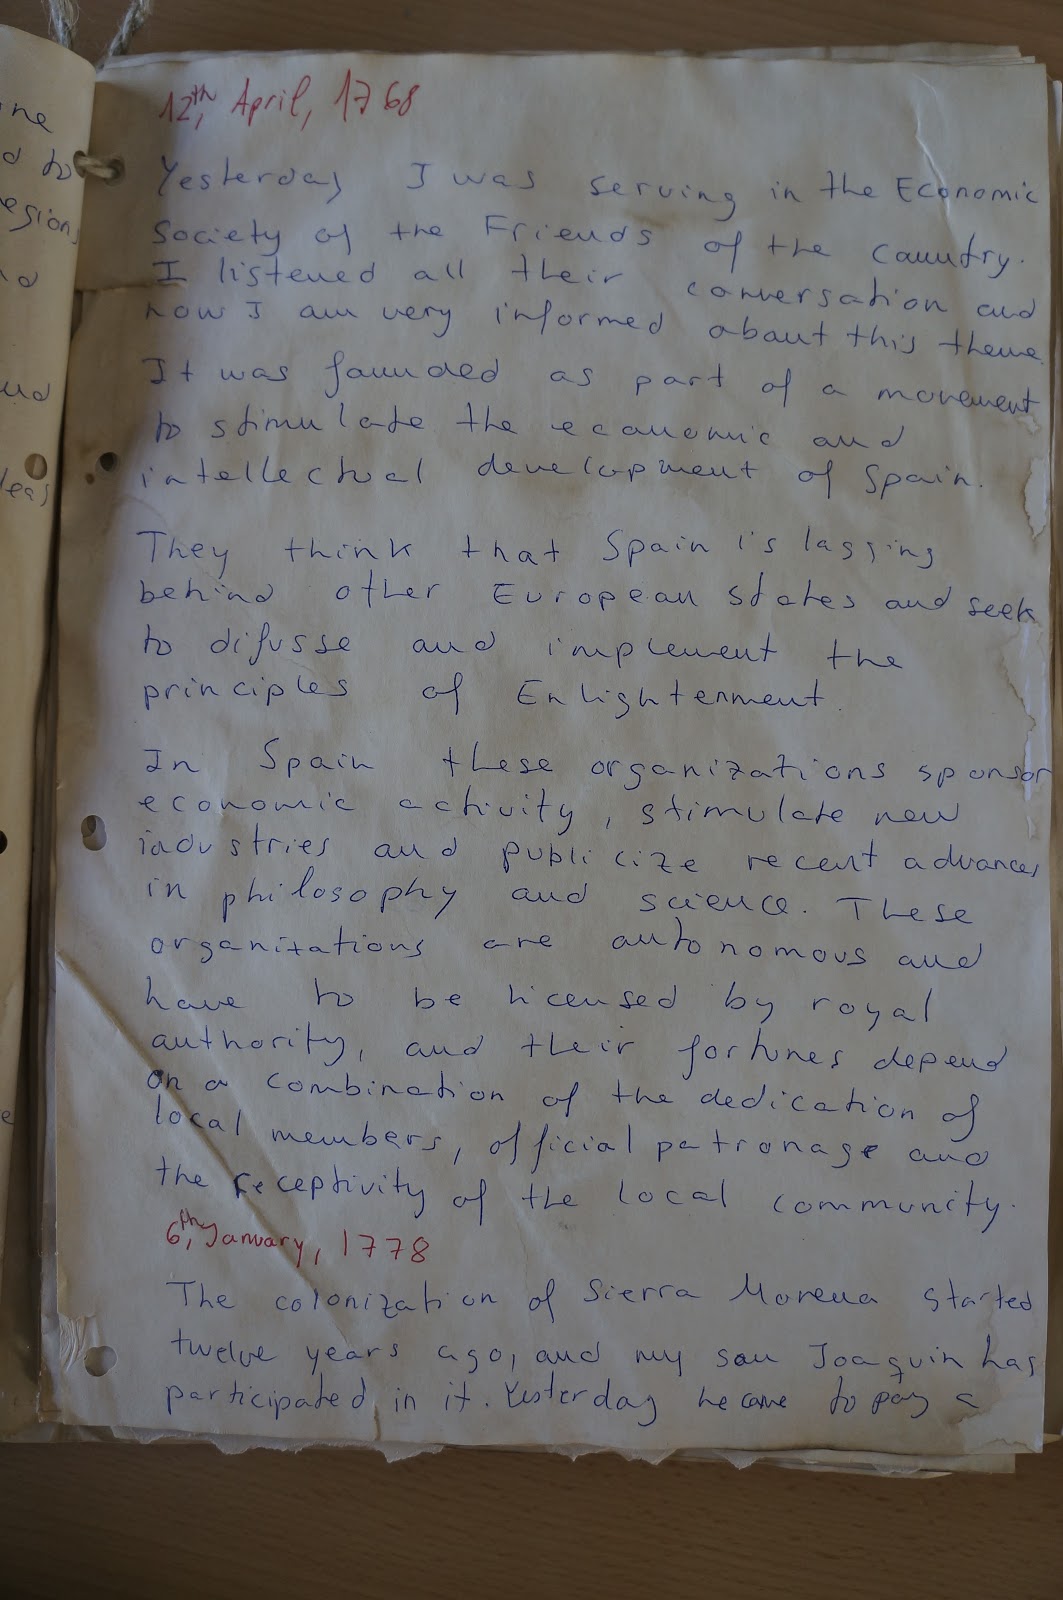 ne
d to
egion,
nd
und
leas
e
12th, April, 1768
Yesterday I was serving in the Economic
Society of the Friends of the Country.
I listened all their conversation and
now I am very informed about this theme.
It was founded as part of a movement
to stimulate the economic and
intellectual development of Spain.
They think that Spain is lagging
behind other European states and seek
to difusse and implement the
principles of Enlightenment.
In Spain these organizations sponsor
economic activity, stimulate new
industries and publicize recent advances
in philosophy and science. These
organizations are autonomous and
have to be licensed by royal
authority, and their fortunes depend
on a combination of the dedication of
local members, official patronage and
the receptivity of the local community.
6th, January, 1778
The colonization of Sierra Morena started
twelve years ago, and my son Joaquin has
participated in it. Yesterday he came to pay a